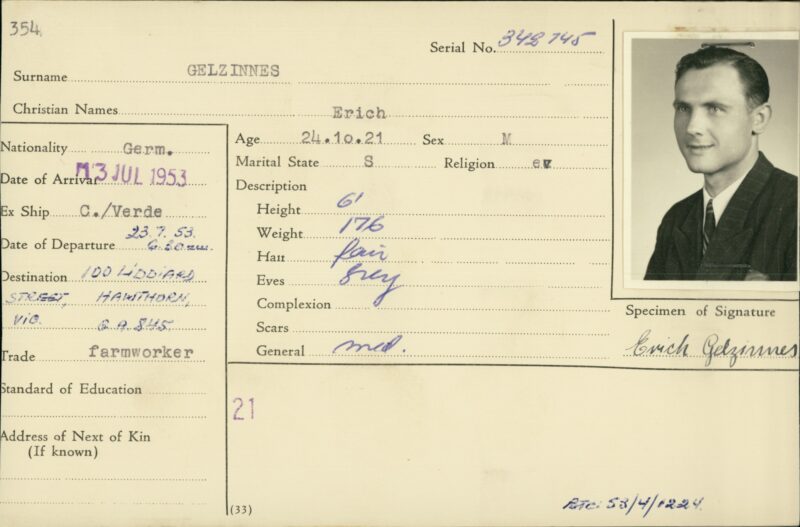 354
Serial No. 348745
Surname GELZINNES
Christian Names Erich
Nationality Germ.
Date of Arrival 13 JUL 1953
Ex Ship C./Verde
23.7.53.
Date of Departure
Destination 100 LIDDIARD
STREET, HAWTHORN,
VIC. C.A. 845.
Trade farmworker
Standard of Education
Address of Next of Kin
(If known)
Age 24.10.21 Sex M
Marital State S Religion ev
Description
Height 6'
Weight 176
Hair fair
Eyes grey
Complexion
Scars
General med.
Specimen of Signature
Erich Gelzinnes
21
(33)
53/4/1224